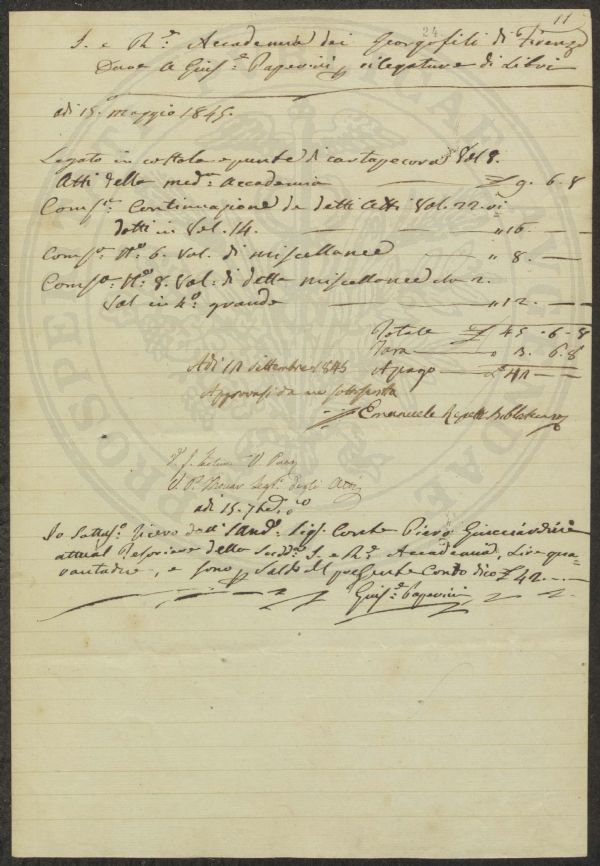 11
24
I. e R.ª Accademia dei Georgofili di Firenze
Deve A Gius.e Papevini p rilegature di Libri
adi 15. maggio 1845.
Legato in costola e punte di cartapecora Vol. 8.
Atti della med.a Accademia £ 9. 6. 8
Comp.o Continuazione de detti Atti Vol. 22.
dotti in Vol. 14. " 16. —
Comp.o N.o 6. Vol. di miscellanee " 8. —
Comp.o N.o 8. Vol. di dette miscellanee che 2.
Vol in 4.o grande " 12. —
Totale £ 45. 6. 8
Tara " 3. 6. 8
A pago £ 42 —
Adi 12 Settembre 1845
Approvasi da me sottoscritto
Emanuele Repetti Bibliotecario
V. P.
Segr. degli Atti
adi 15. 7bre
Io Sottos.o ricevo dall' Sig. Conte Piero Guicciardini
attual Tesoriere della Sudd.a I. e R.e Accademia, Lire qua=
rantadue, e sono p Saldo del presente Conto dico £ 42. —
Gius.e Papevini
PROSPE